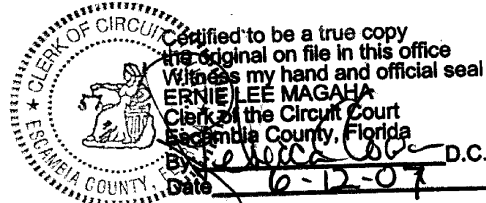 CLERK OF CIRCUIT
ESCAMBIA COUNTY, FL
Certified to be a true copy
the original on file in this office
Witness my hand and official seal
ERNIE LEE MAGAHA
Clerk of the Circuit Court
Escambia County, Florida
By D.C.
Date 6-12-07